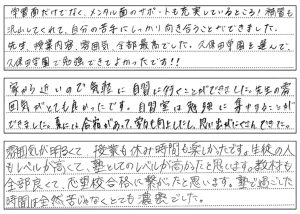 学習面だけでなく、メンタル面のサポートも充実しているところ！補習も
沢山してくれて、自分の苦手にしっかり向き合うことができました。
先生、授業内容、雰囲気、全部最高でした。久保田学園を選んで、
久保田学園で勉強できてよかったです!!
家から近いので気軽に自習に行くことができました。先生の雰
囲気がとても良かったです。自習室は勉強に集中することが
できました。夏には合宿があって、学力も向上したし、思い出がたくさんできた。
雰囲気が明るくて、授業も休み時間も楽しかったです。生徒の人
もレベルが高くて、塾としてのレベルが高かったと思います。教材も
全部良くて、志望校合格に繋がったと思います。塾で過ごした
時間は全然苦じゃなくとても濃密でした。